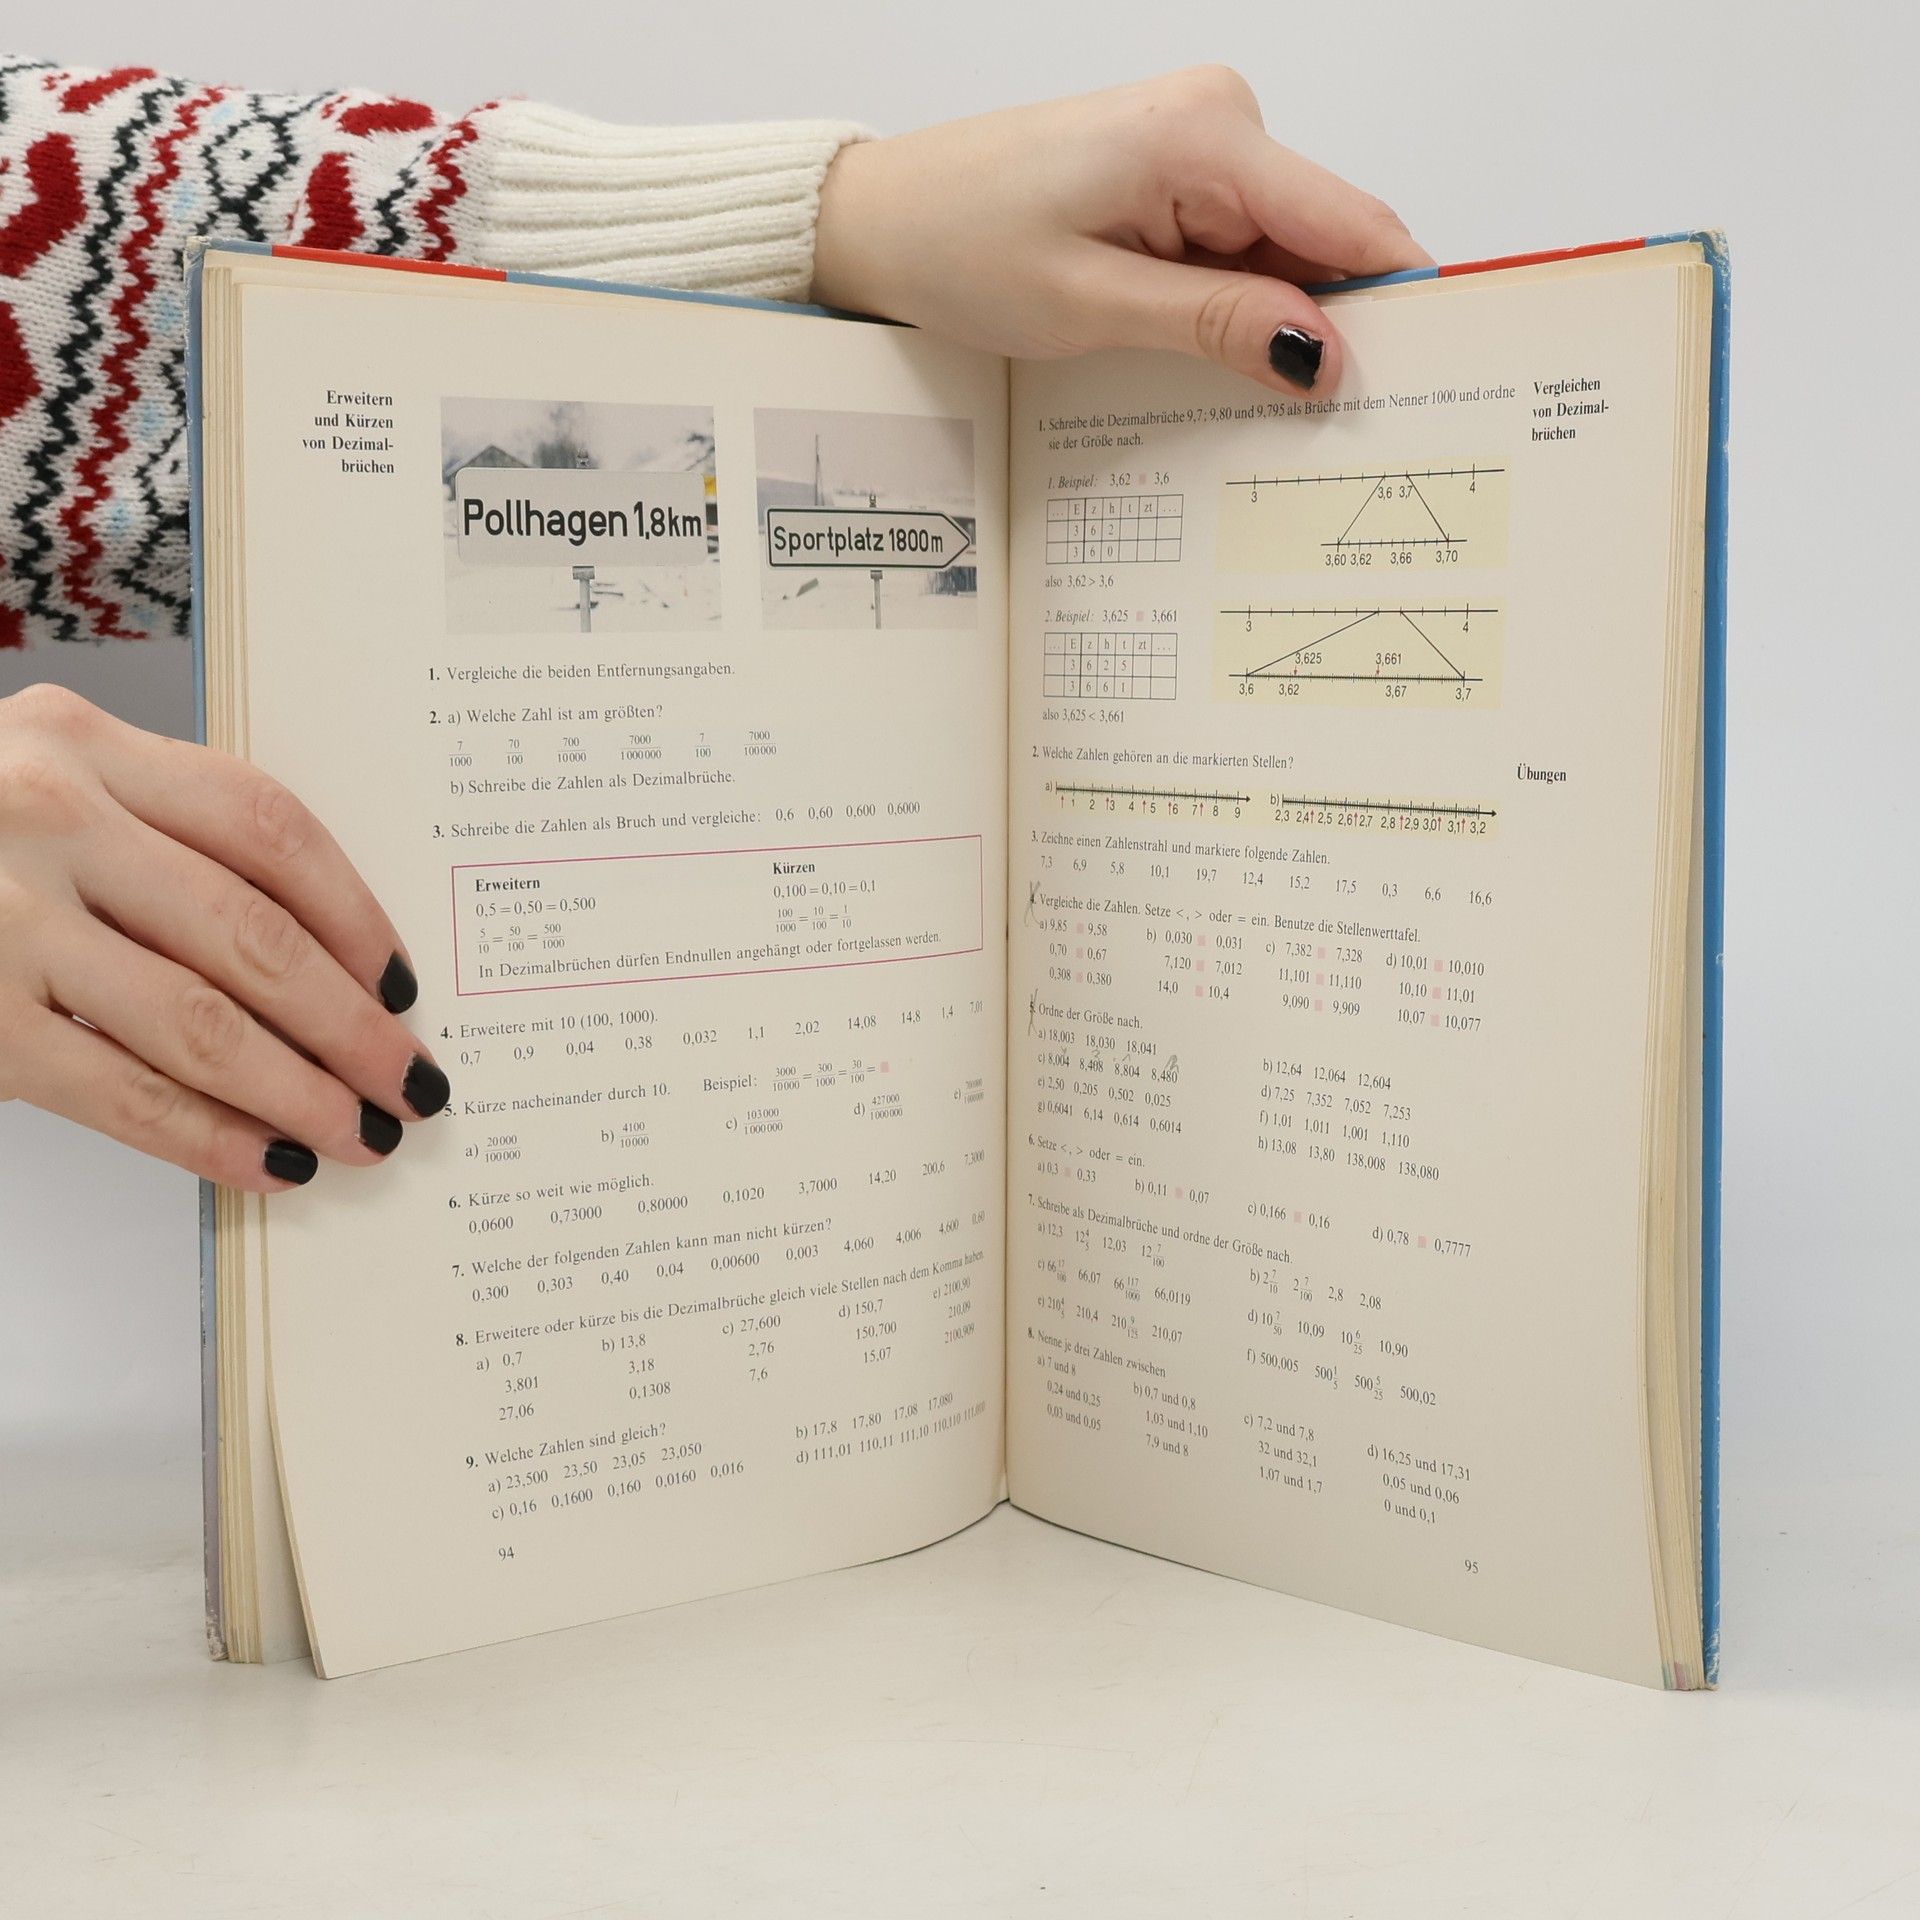 Erweitern
und Kürzen
von Dezimal-
brüchen
Pollhagen 1,8km
Sportplatz 1800m
1. Vergleiche die beiden Entfernungsangaben.
2. a) Welche Zahl ist am größten?
7/1000 70/100 700/10000 7000/1000000 7/100 7000/100000
b) Schreibe die Zahlen als Dezimalbrüche.
3. Schreibe die Zahlen als Bruch und vergleiche: 0,6 0,60 0,600 0,6000
Erweitern
0,5 = 0,50 = 0,500
5/10 = 50/100 = 500/1000
Kürzen
0,100 = 0,10 = 0,1
100/1000 = 10/100 = 1/10
In Dezimalbrüchen dürfen Endnullen angehängt oder fortgelassen werden.
4. Erweitere mit 10 (100, 1000).
0,7 0,9 0,04 0,38 0,032 1,1 2,02 14,08 14,8 1,4 7,01
5. Kürze nacheinander durch 10. Beispiel: 3000/10000 = 300/1000 = 30/100 =
a) 20000/100000 b) 4100/10000 c) 103000/1000000 d) 427000/1000000 e)
6. Kürze so weit wie möglich.
0,0600 0,73000 0,80000 0,1020 3,7000 14,20 200,6 7,3000
7. Welche der folgenden Zahlen kann man nicht kürzen?
0,300 0,303 0,40 0,04 0,00600 0,003 4,060 4,006 4,600 0,60
8. Erweitere oder kürze bis die Dezimalbrüche gleich viele Stellen nach dem Komma haben.
a) 0,7 b) 13,8 c) 27,600 d) 150,7 e) 2100,90
3,801 3,18 2,76 150,700 210,09
27,06 0,1308 7,6 15,07 2100,909
9. Welche Zahlen sind gleich?
a) 23,500 23,50 23,05 23,050 b) 17,8 17,80 17,08 17,080
c) 0,16 0,1600 0,160 0,0160 0,016 d) 111,01 110,11 111,10 110,110 111,010
94
Vergleichen
von Dezimal-
brüchen
1. Schreibe die Dezimalbrüche 9,7; 9,80 und 9,795 als Brüche mit dem Nenner 1000 und ordne
sie der Größe nach.
1. Beispiel: 3,62 3,6
... E z h t zt ...
3 6 2
3 6 0
also 3,62 > 3,6
3 3,6 3,7 4
3,60 3,62 3,66 3,70
2. Beispiel: 3,625 3,661
... E z h t zt ...
3 6 2 5
3 6 6 1
also 3,625 < 3,661
3 4
3,625 3,661
3,6 3,62 3,67 3,7
2. Welche Zahlen gehören an die markierten Stellen?
Übungen
a) 1 2 3 4 5 6 7 8 9
b) 2,3 2,4 2,5 2,6 2,7 2,8 2,9 3,0 3,1 3,2
3. Zeichne einen Zahlenstrahl und markiere folgende Zahlen.
7,3 6,9 5,8 10,1 19,7 12,4 15,2 17,5 0,3 6,6 16,6
4. Vergleiche die Zahlen. Setze <, > oder = ein. Benutze die Stellenwerttafel.
a) 9,85 9,58 b) 0,030 0,031 c) 7,382 7,328 d) 10,01 10,010
0,70 0,67 7,120 7,012 11,101 11,110 10,10 11,01
0,308 0,380 14,0 10,4 9,090 9,909 10,07 10,077
5. Ordne der Größe nach.
a) 18,003 18,030 18,041 b) 12,64 12,064 12,604
c) 8,004 8,408 8,804 8,480 d) 7,25 7,352 7,052 7,253
e) 2,50 0,205 0,502 0,025 f) 1,01 1,011 1,001 1,110
g) 0,6041 6,14 0,614 0,6014 h) 13,08 13,80 138,008 138,080
6. Setze <, > oder = ein.
a) 0,3 0,33 b) 0,11 0,07 c) 0,166 0,16 d) 0,78 0,7777
7. Schreibe als Dezimalbrüche und ordne der Größe nach.
a) 12,3 12 4/5 12,03 12 7/100 b) 2 7/10 2 7/100 2,8 2,08
c) 66 17/100 66,07 66 117/1000 66,0119 d) 10 7/50 10,09 10 6/25 10,90
e) 210 4/5 210,4 210 9/125 210,07 f) 500,005 500 1/5 500 5/25 500,02
8. Nenne je drei Zahlen zwischen
a) 7 und 8 b) 0,7 und 0,8 c) 7,2 und 7,8 d) 16,25 und 17,31
0,24 und 0,25 1,03 und 1,10 32 und 32,1 0,05 und 0,06
0,03 und 0,05 7,9 und 8 1,07 und 1,7 0 und 0,1
95